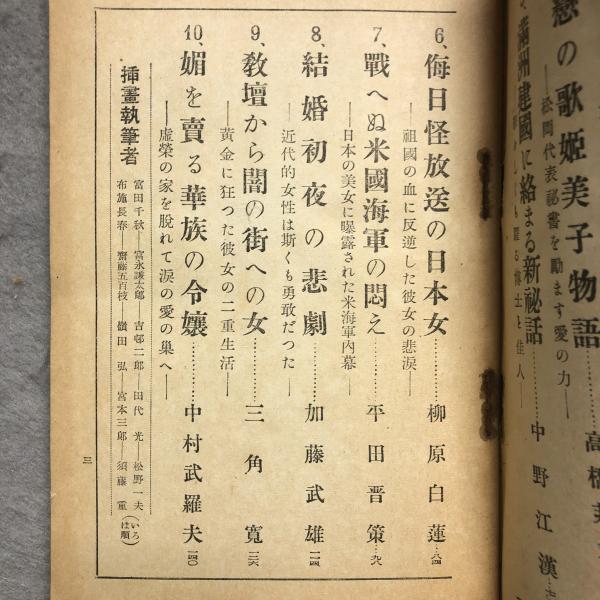 戀の歌姬美子物語
――松岡代表祕書を勵ます愛の力――
滿洲建國に絡まる新祕話………中野江漢
6、侮日怪放送の日本女………柳原白蓮…八四
――祖國の血に反逆した彼女の悲涙――
7、戰へぬ米國海軍の悶え………平田晋策…九八
――日本の美女に曝露された米海軍内幕――
8、結婚初夜の悲劇………加藤武雄…一二四
――近代的女性は斯くも勇敢だつた――
9、教壇から闇の街への女………三角寛…一三六
――黄金に狂った彼女の二重生活――
10、媚を賣る華族の令孃………中村武羅夫…一四〇
――虚榮の家を脱れて涙の愛の巢へ――
挿畫執筆者
富田千秋――富永謙太郎――吉邨二郎――田代光――松野一夫
布施長春――齋藤五百枝――嶺田弘――宮本三郎――須藤重
(いろは順)
三